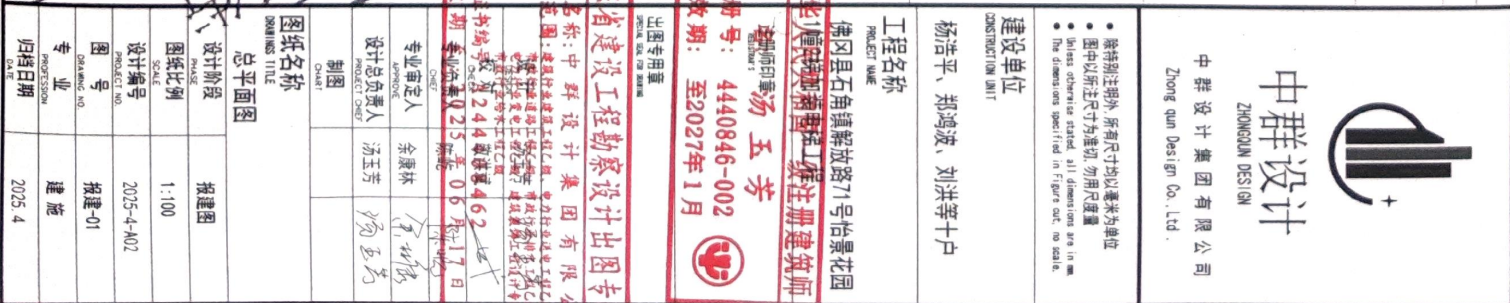 中群设计
ZHONGQUN DESIGN
中群设计集团有限公司
Zhong qun Design Co., Ltd.
• 除特别注明外, 所有尺寸均以毫米为单位
• 图中以所注尺寸为准切, 勿用尺度量
• Unless otherwise stated, all dimensions are in mm
• The dimensions specified in Figure out, no scale.
建设单位
CONSTRUCTION UNIT
杨浩平、郑鸿波、刘洪等十户
工程名称
PROJECT NAME
佛冈县石角镇解放路71号怡景花园
级注册建筑师
注册师印章
汤玉芳
册号: 4440846-002
效期: 至2027年1月
出图专用章
SPECIAL SEAL FOR DRAWING
省建设工程勘察设计出图专
名称: 中群设计集团有限公
专业审定人
APPROVE
余康林
设计总负责人
PROJECT CHIEF
汤玉芳
制图
CHART
图纸名称
DRAWINGS TITLE
总平面图
设计阶段
PHASE
报建图
图纸比例
SCALE
1:100
设计编号
PROJECT NO.
2025-4-A02
图号
DRAWING NO.
报建-01
专业
PROFESSION
建施
归档日期
DATE
2025.4